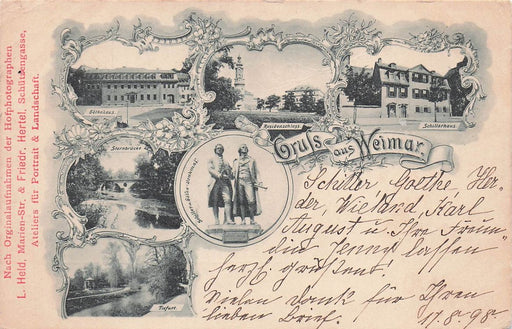 Nach Orginalaufnahmen der Hofphotographen
L. Held, Marien-Str., & Friedr. Hertel, Schützengasse,
Ateliers für Portrait & Landschaft.
Göthehaus.
Residenzschloss.
Schillerhaus.
Sternbrücke.
Schiller-Göthe-denkmal.
Tiefurt.
Gruss aus Weimar.
Schiller, Goethe, Her-
der, Wieland, Karl
August u. Ihre Freun-
din Jenny lassen
herzl. grüßen.
Vielen Dank für Ihren
lieben Brief. 17.8.98.